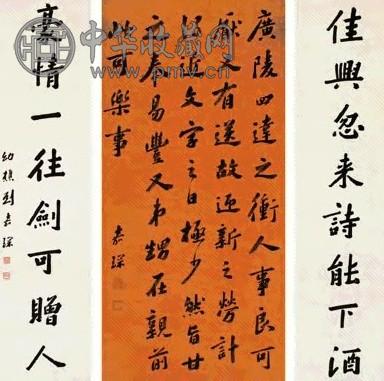 中华收藏网
www.pmv.cn
佳興忽来詩能下酒
廣陵四達之衝人事良可
厭又有送故迎新之勞計
近文字之日極少然旨甘
之奉易豐又弟甥在親前
此可樂事
嘉琛
豪情一往劍可贈人
幼樵劉嘉琛